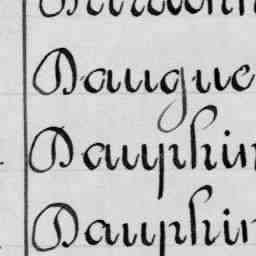 Daugue
Dauphin
Dauphin